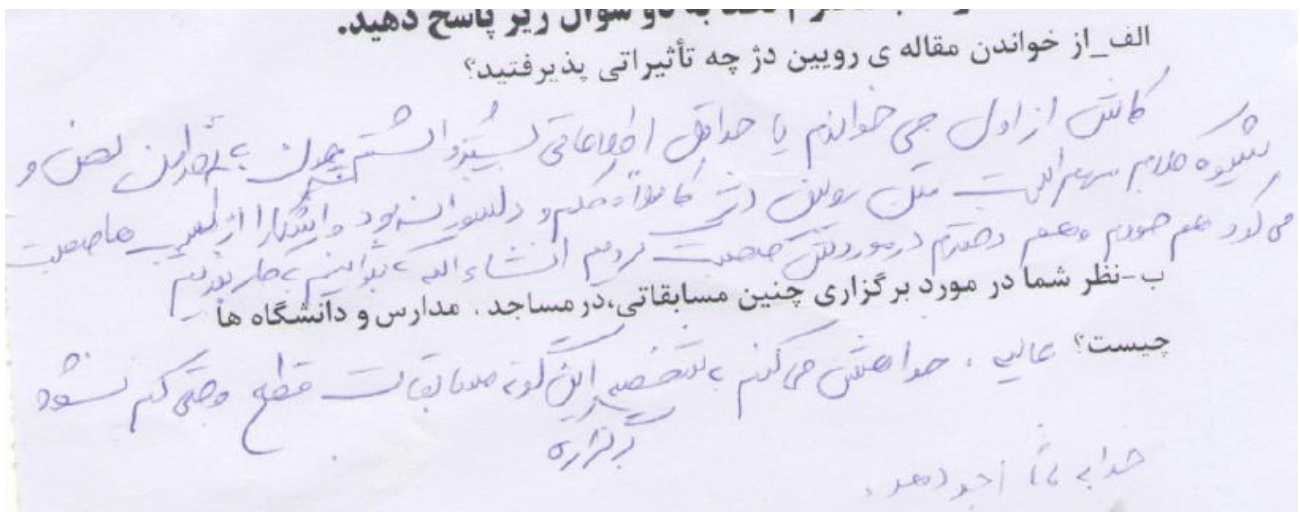 به دو سوال زیر پاسخ دهید.
الف_از خواندن مقاله ی رویین دژ چه تأثیراتی پذیرفتید؟
کاش از اول می خواندم یا حداقل اطلاعاتی بیشتر داشتم چون به نظرم این لحن و
شیوه کلام مهم است متن رویین دژ کاملا محکم و دلسوزانه بود وانگار از نزدیک با ما صحبت
می کرد هم خودم وهم دخترم در موردش صحبت کردیم انشاء الله بتوانیم به کار بندیم
ب-نظر شما در مورد برگزاری چنین مسابقاتی،در مساجد ، مدارس و دانشگاه ها
چیست؟ عالیه ، خواهش می کنم این گونه مسابقات قطع وحتی کم نشود
برگزاری
خدا به شما اجر دهد .